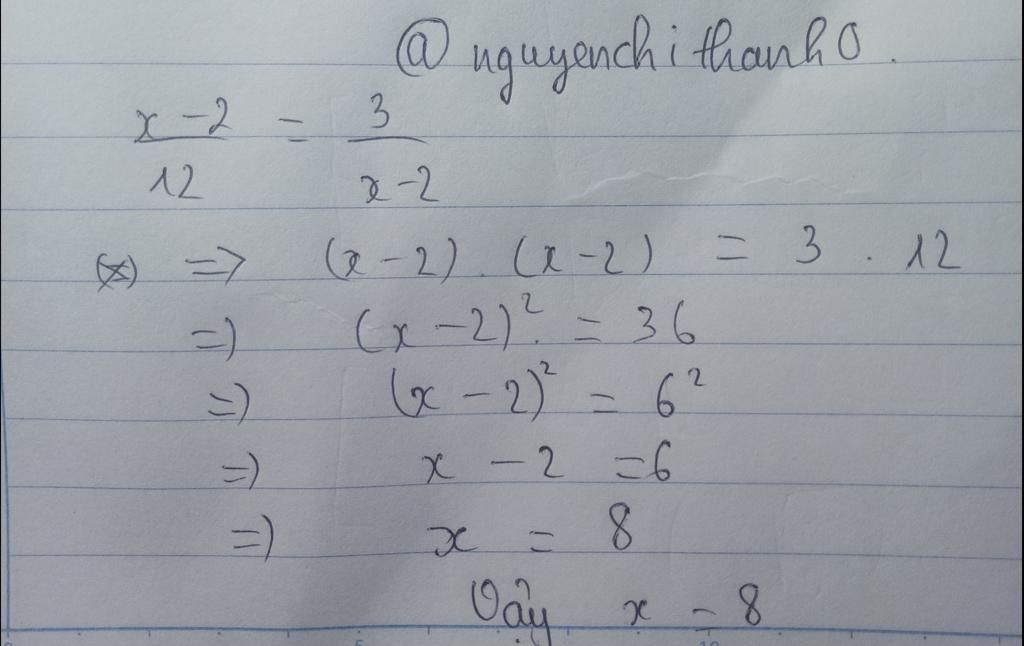 @nguyenchithanh0.
x - 2 / 12 = 3 / x - 2
(*) => (x - 2) . (x - 2) = 3 . 12
=) (x - 2)². = 36
=) (x - 2)² = 6²
=) x - 2 = 6
=) x = 8
Vậy x = 8
5 10